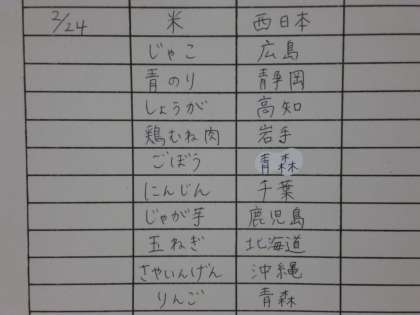 2/24 米 西日本
じゃこ 広島
青のり 静岡
しょうが 高知
鶏むね肉 岩手
ごぼう 青森
にんじん 千葉
じゃが芋 鹿児島
玉ねぎ 北海道
さやいんげん 沖縄
りんご 青森